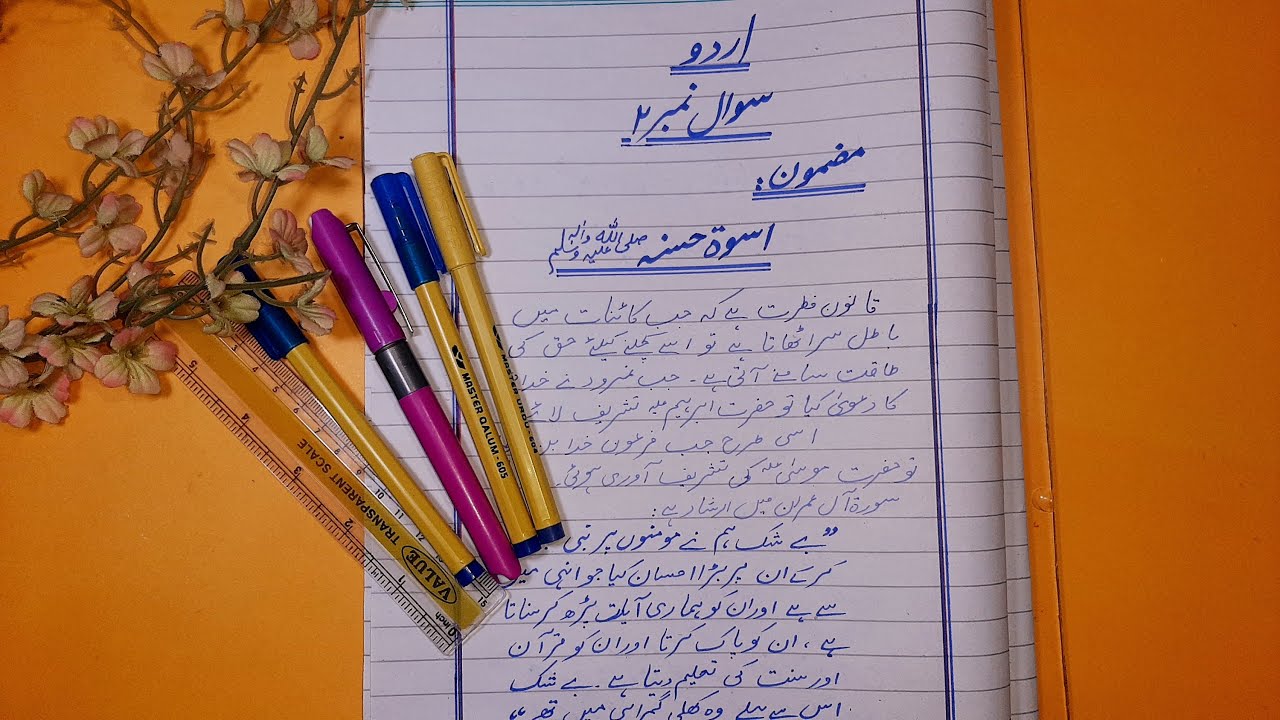 اردو
سوال نمبر ۲
مضمون:
اسوۃ حسنہ صلی اللہ علیہ وآلہ وسلم
قانون فطرت ہے کہ جب کائنات میں
باطل سر اٹھاتا ہے تو اسے کچلنے کیلئے حق کی
طاقت سامنے آتی ہے۔ جب نمرود نے خدا
کا دعویٰ کیا تو حضرت ابرہیمؑ تشریف لائے
اسی طرح جب فرعون خدا
تو حضرت موسیٰؑ کی تشریف آوری ہوئی۔
سورۃ آل عمران میں ارشاد ہے:
”بے شک ہم نے مومنوں پر نبی
کرکے ان پر بڑا احسان کیا جو انہی میں
سے ہے اور ان کو ہماری آیات پڑھ کر سناتا
ہے، ان کو پاک کرتا اور ان کو قرآن
اور سنت کی تعلیم دیتا ہے۔ بے شک
اس سے پہلے وہ کھلی گمراہی میں تھے“
MASTER QALUM-605
MASTER
VALUE TRANSPARENT SCALE
inch